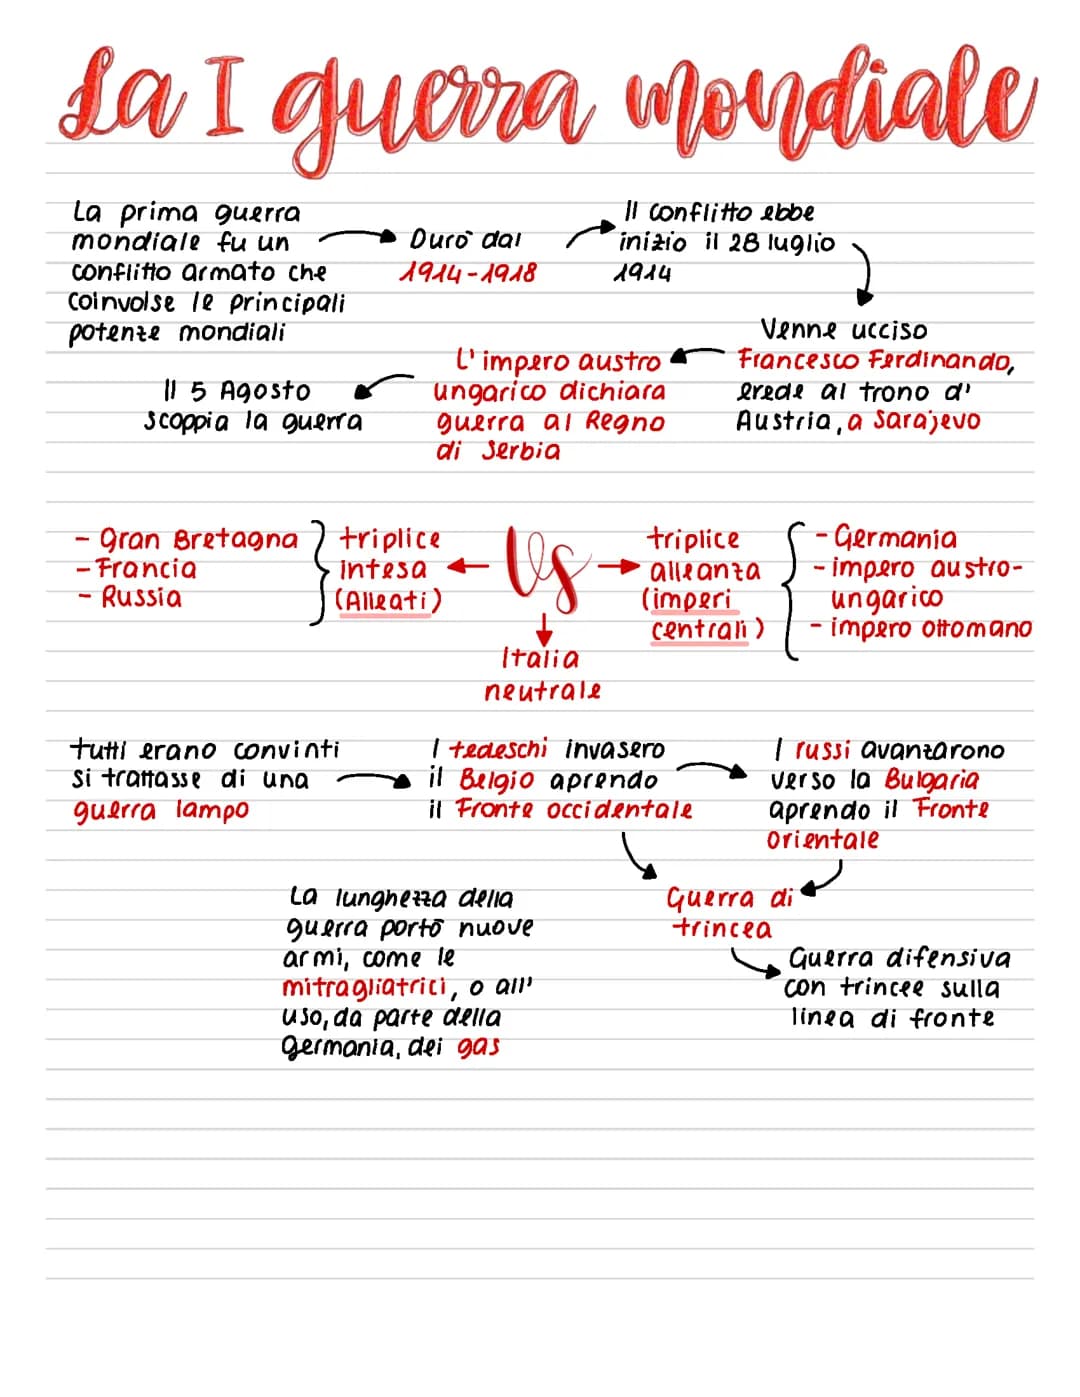 La I guerra mondiale
La prima guerra
mondiale fu un
conflitto armato che
coinvolse le principali
potenze mondiali
Durò dal
1914-1918
Il conflitto ebbe
inizio il 28 luglio
1914
Venne ucciso
Francesco Ferdinando,
erede al trono d'
Austria, a Sarajevo
L'impero austro
ungarico dichiara
guerra al Regno
di Serbia
Il 5 Agosto
scoppia la guerra
- Gran Bretagna
- Francia
- Russia
triplice
intesa
(Alleati)
Vs
triplice
alleanza
(imperi
centrali)
- Germania
- impero austro-
ungarico
- impero ottomano
Italia
neutrale
tutti erano convinti
si trattasse di una
guerra lampo
I tedeschi invasero
il Belgio aprendo
il Fronte occidentale
I russi avanzarono
verso la Bulgaria
aprendo il Fronte
orientale
Guerra di
trincea
Guerra difensiva
con trincee sulla
linea di fronte
La lunghezza della
guerra portò nuove
armi, come le
mitragliatrici, o all'
uso, da parte della
Germania, dei gas